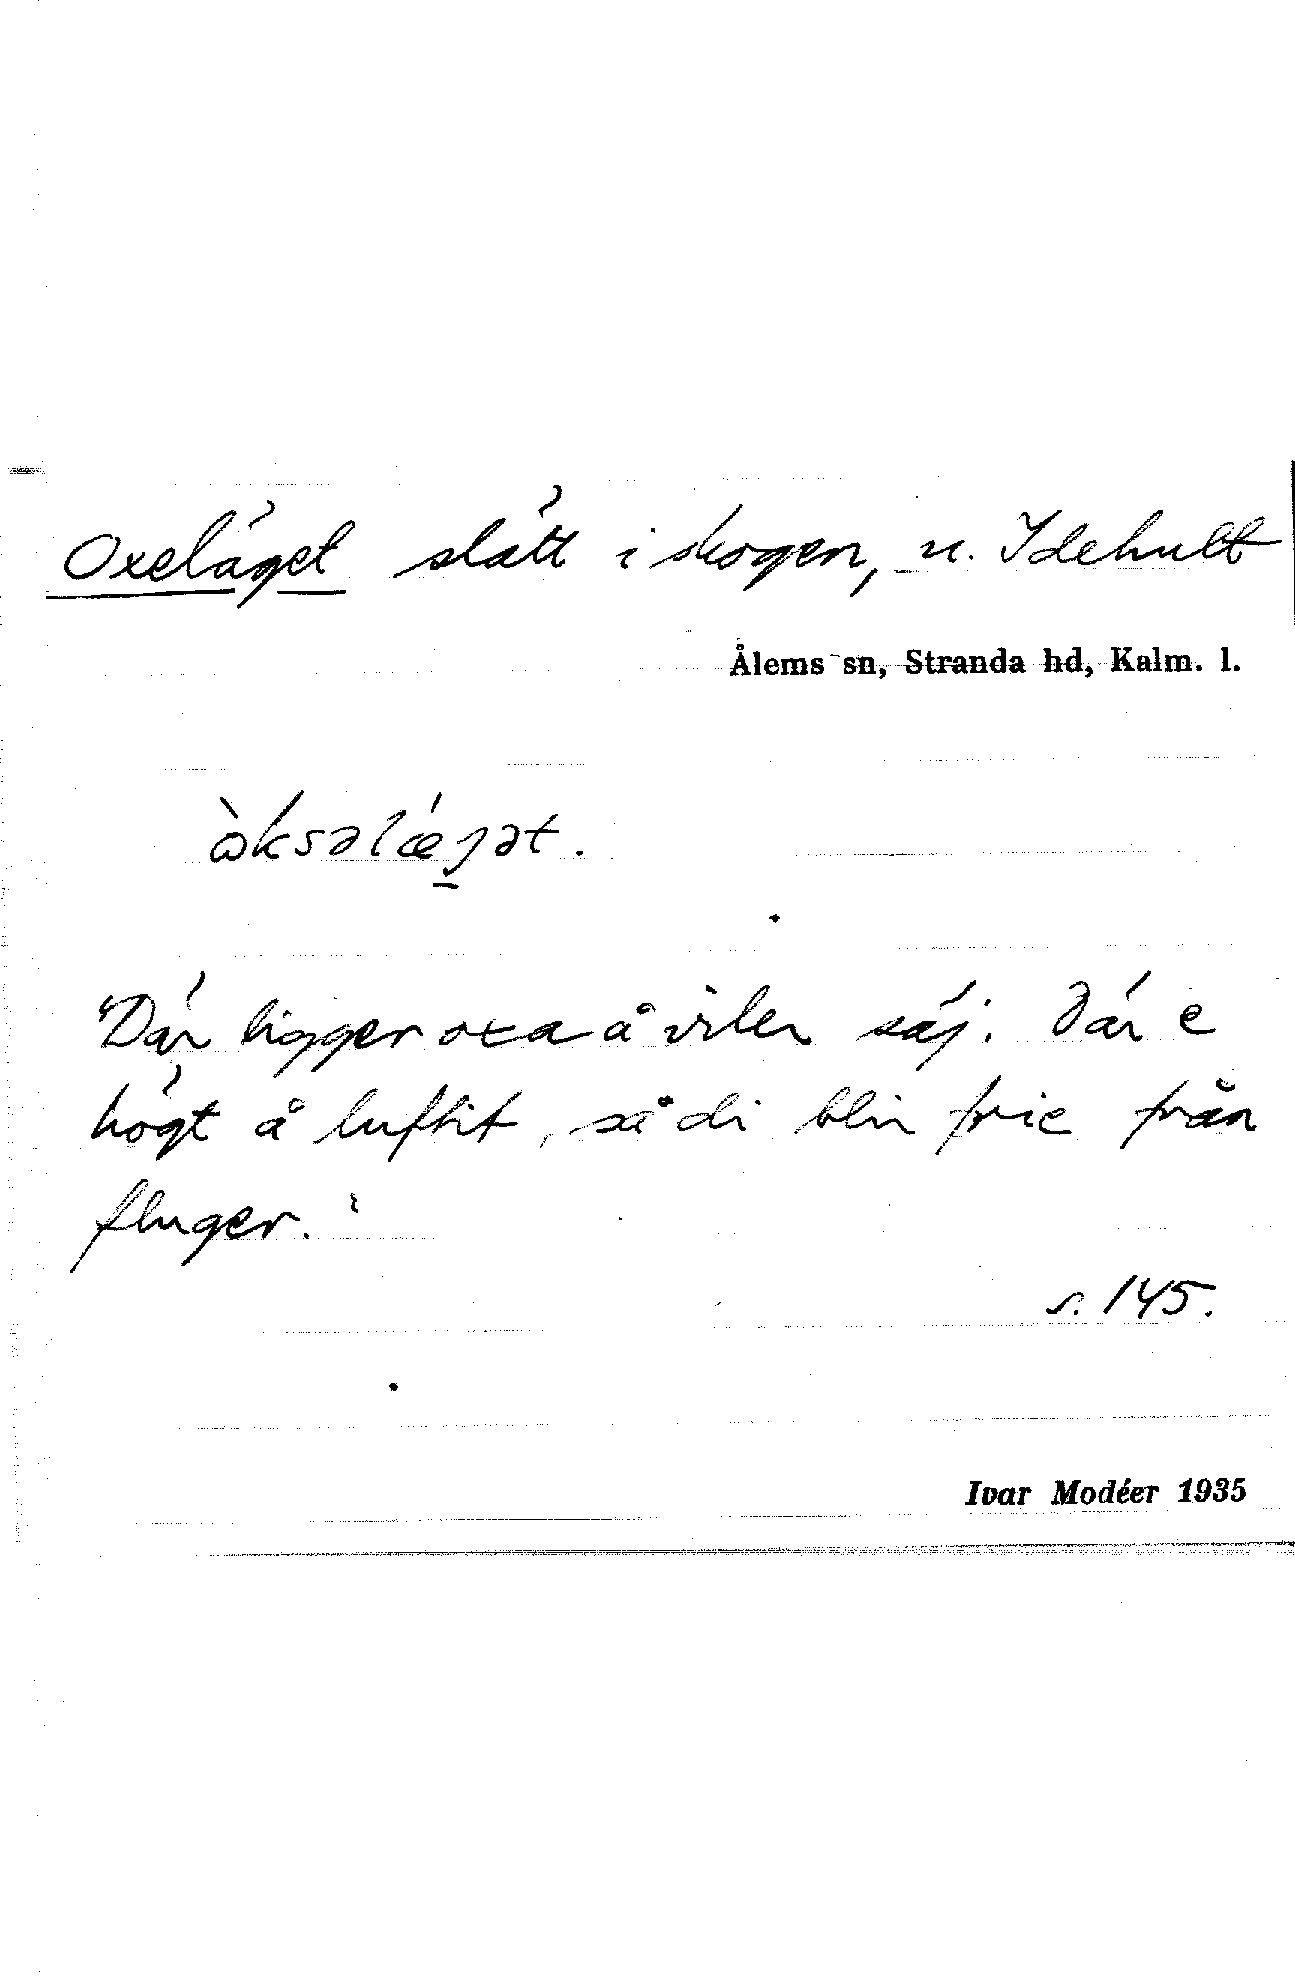 Oxeläget slätt i skogen, u. Idehult
Ålems sn, Stranda hd, Kalm. l.
ὼksəlǽgət.
"Där ligger oxa å viler säj. Där e
högt å luftit, så di blir frie från
fluger."
s. 145.
Ivar Modéer 1935